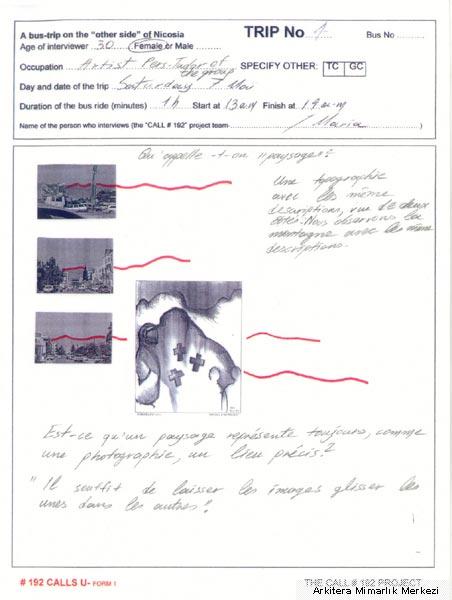 A bus-trip on the "other side" of Nicosia
TRIP No 1
Bus No
Age of interviewer 30 Female or Male
Occupation Artist Pers-Tudor of the group
SPECIFY OTHER: TC GC
Day and date of the trip Saturday 7 Mar
Duration of the bus ride (minutes) 1h Start at 13 Finish at 14
Name of the person who interviews (the "CALL # 192" project team) / Maria
Qu'appelle-t-on "paysage"?
Une topographie
avec les même
descriptions, vue de deux
côtés. Nous observons la
montagne avec les même
descriptions.
Est-ce qu'un paysage représente toujours, comme
une photographie, un lieu précis?
"Il suffit de laisser les images glisser les
unes dans les autres".
# 192 CALLS U- FORM 1
THE CALL # 192 PROJECT
Arkitera Mimarlık Merkezi